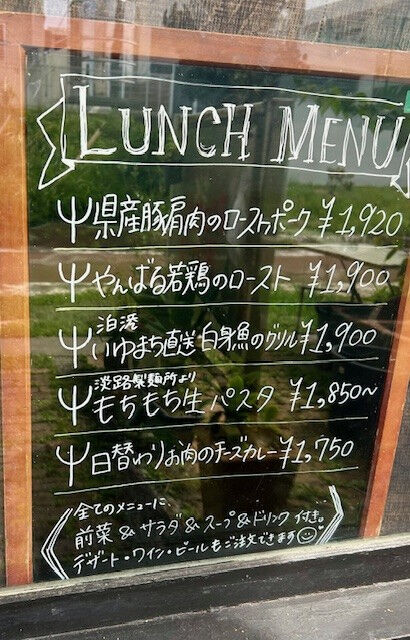 LUNCH MENU
県産豚肩肉のローストポーク ¥1,920
やんばる若鶏のロースト ¥1,900
泊港
いゆまち直送 白身魚のグリル ¥1,900
淡路製麺所より
もちもち生パスタ ¥1,850~
日替わりお肉のチーズカレー ¥1,750
全てのメニューに、
前菜&サラダ&スープ&ドリンク付き。
デザート・ワイン・ビールもご注文できます